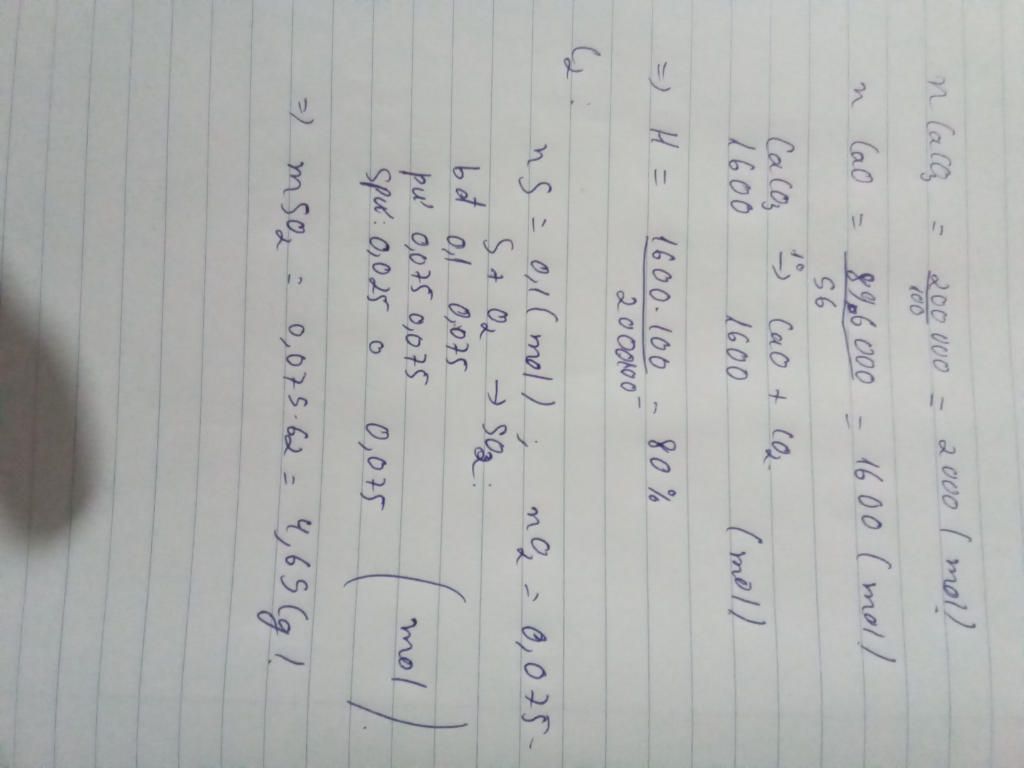 n CaCO3 = 200000/100 = 2000 (mol)
n CaO = 89,6000/56 = 1600 (mol)
CaCO3 t°→ CaO + CO2
1600 1600 (mol)
=> H = 1600.100/2000 = 80%
C2:
nS = 0,1 (mol) ; nO2 = 0,075
S + O2 → SO2:
bđ 0,1 0,075
pư 0,075 0,075
Spư: 0,025 0 0,075 (mol)
=> mSO2 = 0,075.62 = 4,65 (g)